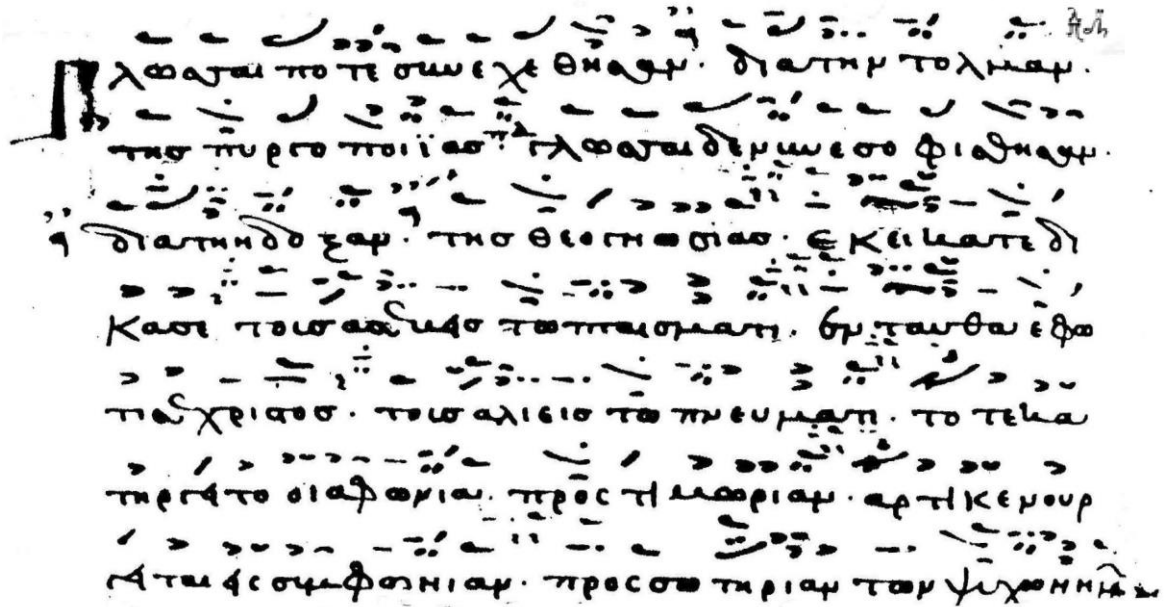 Γλωσσαι ποτε συνεχεθησαν · δια την τολμαν ·
της πυργοποιϊας · γλωσσαι δε νυν εσοφισθησαν ·
δια την δοξαν · της θεογνωσιας · εκει κατεδι
κασε τους ασεβεις τω πταισματι · ενταυθα εφω
τισε χριστος · τους αλιεις τω πνευματι · τοτε κα
τηργειτο η αφωνια · προς τιμωριαν · αρτι καινουρ
γειται εις συμφωνιαν · προς σωτηριαν των ψυχων ημων